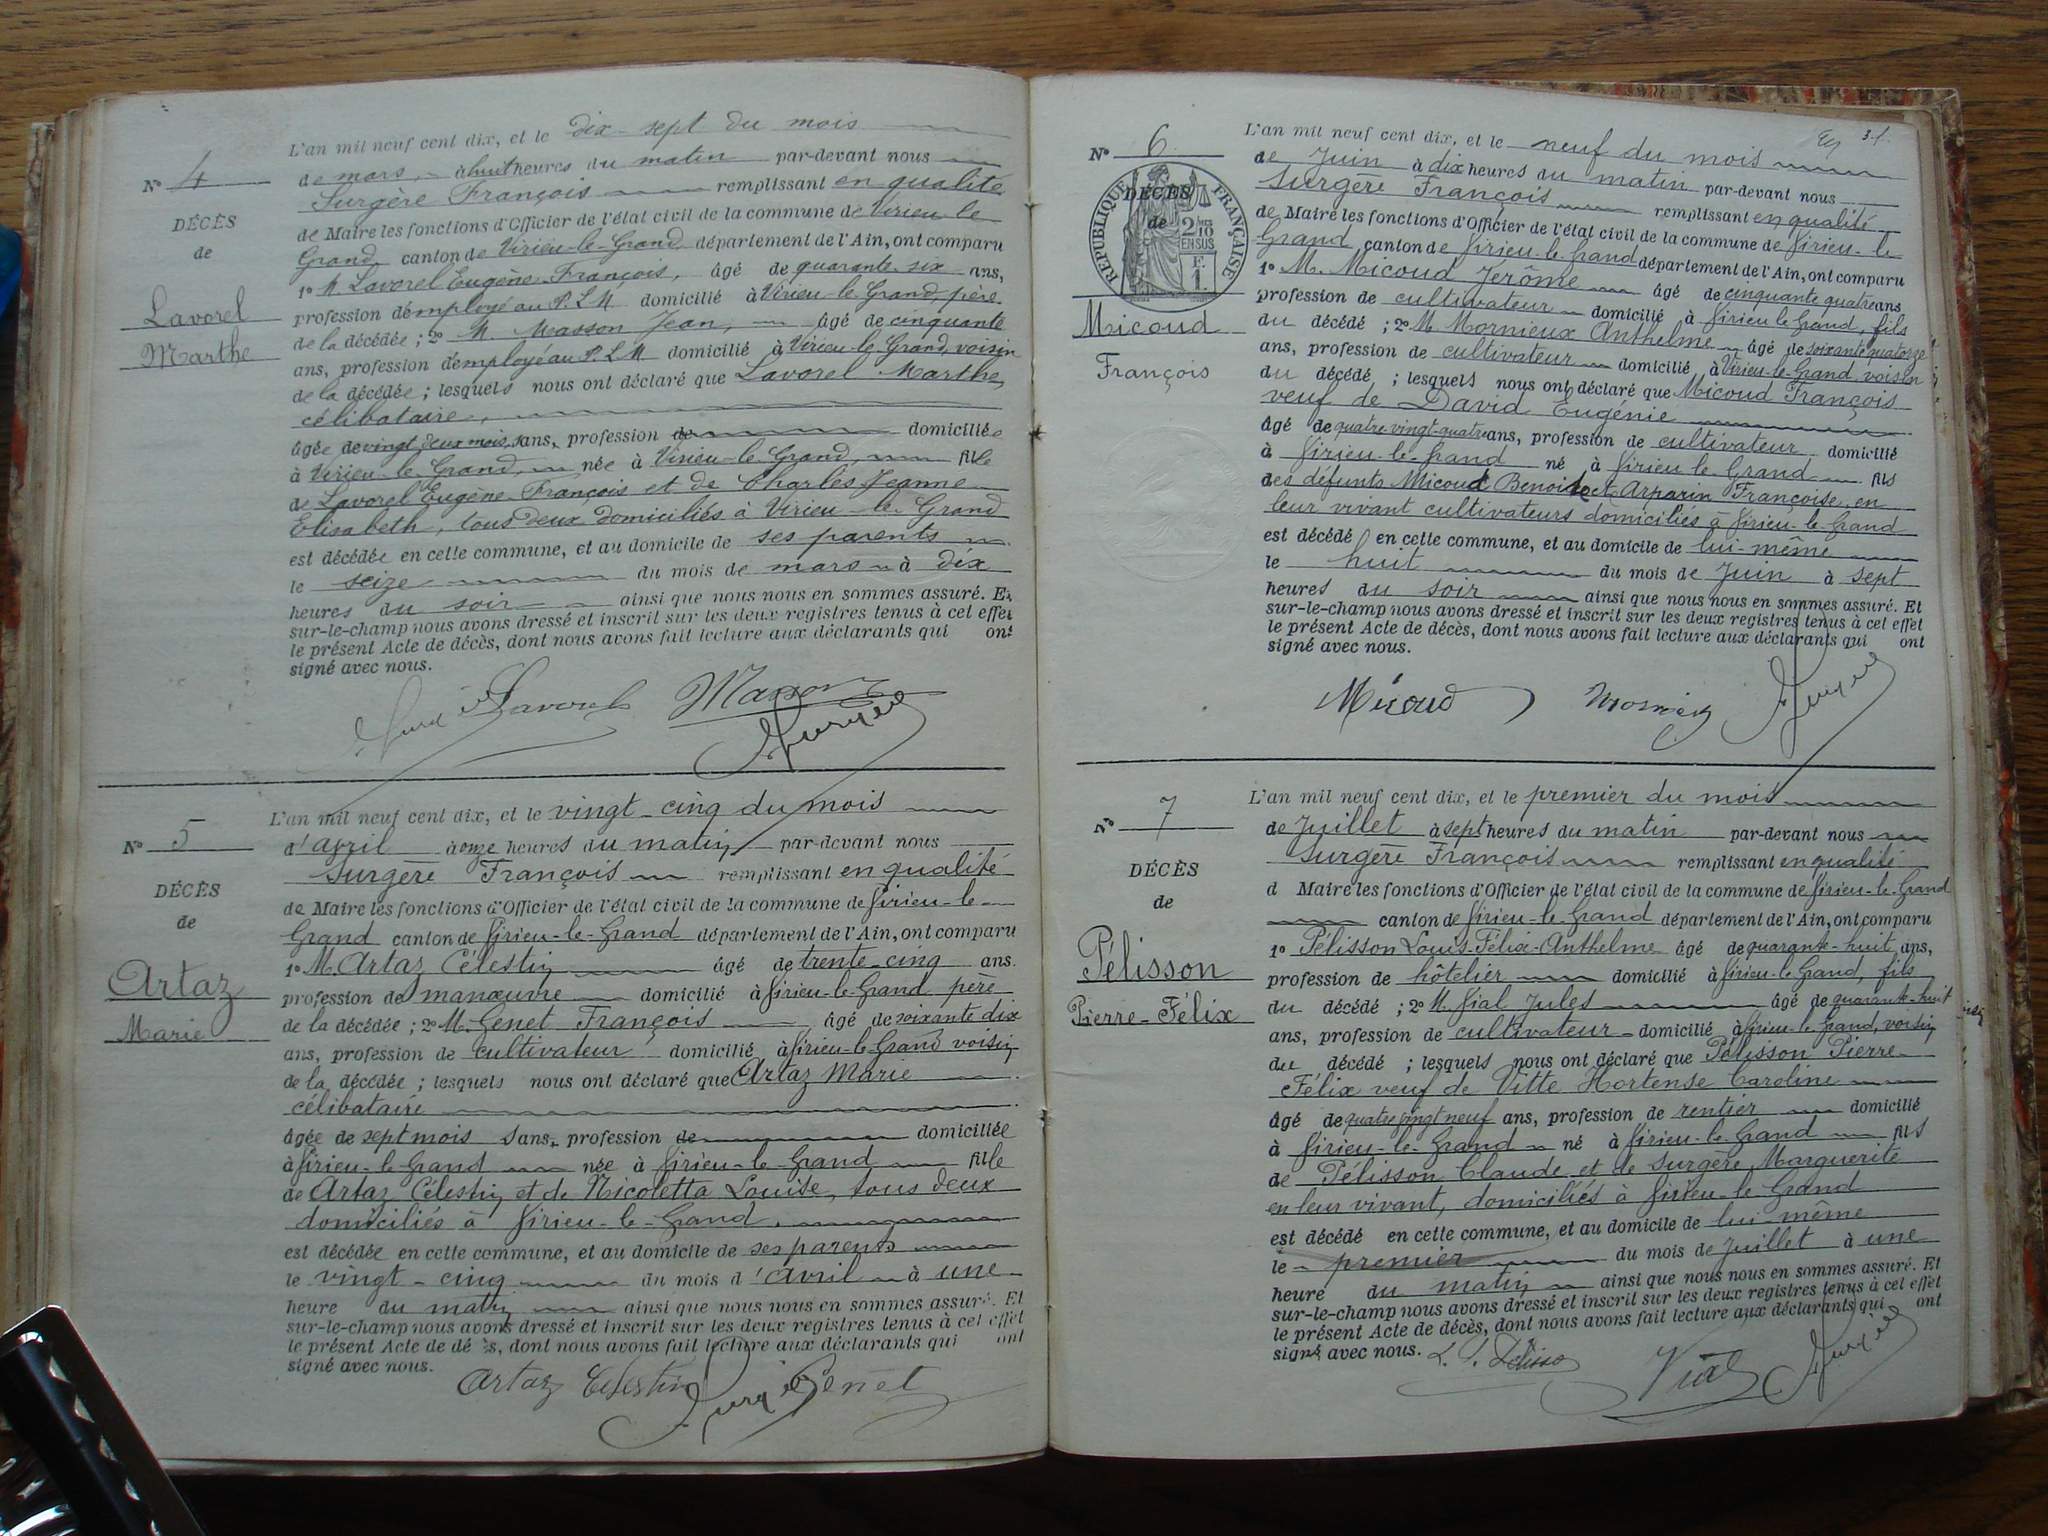 L'an mil neuf cent dix, et le dix-sept du mois
Nº 4
de mars, à huit heures du matin par-devant nous
Surgère François remplissant en qualité
DÉCÈS
de Maire les fonctions d'Officier de l'état civil de la commune de Virieu-le
de
Grand canton de Virieu-le-Grand département de l'Ain, ont comparu
1º M. Lavorel Eugène François, âgé de quarante-six ans,
Lavorel
profession d'employé au P.L.M domicilié à Virieu-le-Grand, père
Marthe
de la décédée ; 2º M. Masson Jean, âgé de cinquante
ans, profession d'employé au P.L.M domicilié à Virieu-le-Grand, voisin
de la décédée ; lesquels nous ont déclaré que Lavorel Marthe,
célibataire,
âgée de vingt deux mois, sans, profession de domiciliée
à Virieu-le-Grand, née à Virieu-le-Grand, fille
de Lavorel Eugène-François et de Charles Jeanne
Elisabeth, tous deux domiciliés à Virieu-le-Grand
est décédée en cette commune, et au domicile de ses parents
le seize du mois de mars à dix
heures du soir ainsi que nous nous en sommes assuré. Et
sur-le-champ nous avons dressé et inscrit sur les deux registres tenus à cet effet
le présent Acte de décès, dont nous avons fait lecture aux déclarants qui ont
signé avec nous.
Lavorel Masson
Surgère
L'an mil neuf cent dix, et le vingt-cinq du mois
Nº 5
d'avril à onze heures du matin par-devant nous
Surgère François remplissant en qualité
DÉCÈS
de Maire les fonctions d'Officier de l'état civil de la commune de Virieu-le-
de
Grand canton de Virieu-le-Grand département de l'Ain, ont comparu
1º M. Artaz Célestin âgé de trente-cinq ans.
Artaz
profession de manœuvre domicilié à Virieu-le-Grand père
Marie
de la décédée ; 2º M. Genet François âgé de soixante dix
ans, profession de cultivateur domicilié à Virieu-le-Grand voisin
de la décédée ; lesquels nous ont déclaré que Artaz Marie
célibataire
âgée de sept mois sans, profession de domiciliée
à Virieu-le-Grand née à Virieu-le-Grand fille
de Artaz Célestin et de Nicoletta Louise, tous deux
domiciliés à Virieu-le-Grand.
est décédée en cette commune, et au domicile de ses parents
le vingt-cinq du mois d'avril à une
heure du matin ainsi que nous nous en sommes assuré. Et
sur-le-champ nous avons dressé et inscrit sur les deux registres tenus à cet effet
le présent Acte de décès, dont nous avons fait lecture aux déclarants qui ont
signé avec nous.
Artaz Célestin Surgère Genet
31
L'an mil neuf cent dix, et le neuf du mois
Nº 6
de Juin à dix heures du matin par-devant nous
Surgère François remplissant en qualité
DÉCÈS
de
RÉPUBLIQUE FRANÇAISE
2/10 EN SUS
F. 1.
de Maire les fonctions d'Officier de l'état civil de la commune de Virieu-le
Grand canton de Virieu-le-Grand département de l'Ain, ont comparu
1º M. Micoud Jérôme âgé de cinquante quatre ans
profession de cultivateur domicilié à Virieu le Grand, fils
Micoud
François
du décédé ; 2º M Mornieux Anthelme âgé de soixante quatorze
ans, profession de cultivateur domicilié à Virieu-le-Grand voisin
du décédé ; lesquels nous ont déclaré que Micoud François
veuf de David Eugénie
âgé de quatre-vingt-quatre ans, profession de cultivateur domicilié
à Virieu-le-Grand né à Virieu le Grand fils
des défunts Micoud Benoit et Arparin Françoise, en
leur vivant cultivateurs domiciliés à Virieu-le-Grand
est décédé en cette commune, et au domicile de lui-même
le huit du mois de Juin à sept
heures du soir ainsi que nous nous en sommes assuré. Et
sur-le-champ nous avons dressé et inscrit sur les deux registres tenus à cet effet
le présent Acte de décès, dont nous avons fait lecture aux déclarants qui ont
signé avec nous.
Micoud Surgère
L'an mil neuf cent dix, et le premier du mois
Nº 7
de Juillet à sept heures du matin par-devant nous
Surgère François remplissant en qualité
DÉCÈS
d Maire les fonctions d'Officier de l'état civil de la commune de Virieu-le-Grand
de
canton de Virieu-le-Grand département de l'Ain, ont comparu
1º Pélisson Louis-Félix-Anthelme âgé de quarante-huit ans,
Pélisson
profession de hôtelier domicilié à Virieu-le-Grand, fils
Pierre-Félix
du décédé ; 2º M. Vial Jules âgé de quarante-huit
ans, profession de cultivateur domicilié à Virieu-le-Grand, voisin
du décédé ; lesquels nous ont déclaré que Pélisson Pierre
Félix veuf de Vitte Hortense Caroline
âgé de quatre vingt neuf ans, profession de rentier domicilié
à Virieu-le-Grand né à Virieu-le-Grand fils
de Pélisson Claude et de Surgère Marguerite
en leur vivant, domiciliés à Virieu-le-Grand
est décédé en cette commune, et au domicile de lui-même
le premier du mois de Juillet à une
heure du matin ainsi que nous nous en sommes assuré. Et
sur-le-champ nous avons dressé et inscrit sur les deux registres tenus à cet effet
le présent Acte de décès, dont nous avons fait lecture aux déclarants qui ont
signé avec nous.
Vial Surgère